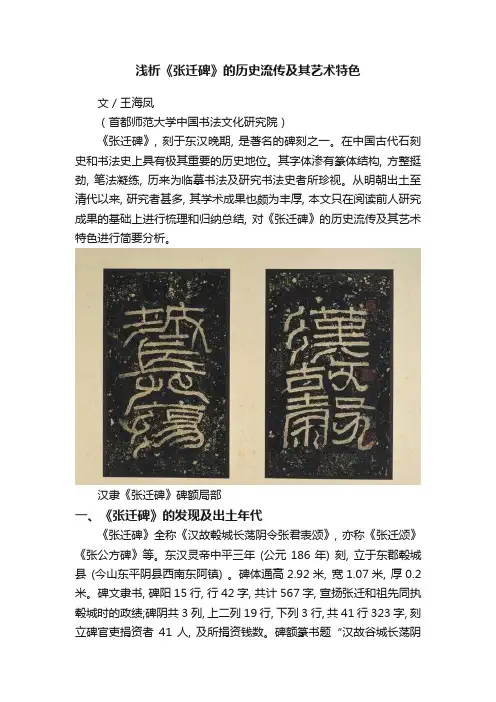 浅析《张迁碑》的历史流传及其艺术特色
文/王海凤
(首都师范大学中国书法文化研究院)
《张迁碑》, 刻于东汉晚期, 是著名的碑刻之一。在中国古代石刻
史和书法史上具有极其重要的历史地位。其字体渗有篆体结构, 方整挺
劲, 笔法凝练, 历来为临摹书法及研究书法史者所珍视。从明朝出土至
清代以来, 研究者甚多, 其学术成果也颇为丰厚, 本文只在阅读前人研究
成果的基础上进行梳理和归纳总结, 对《张迁碑》的历史流传及其艺术
特色进行简要分析。
汉隶《张迁碑》碑额局部
一、《张迁碑》的发现及出土年代
《张迁碑》全称《汉故毂城长荡阴令张君表颂》, 亦称《张迁颂》
《张公方碑》等。东汉灵帝中平三年 (公元 186 年) 刻, 立于东郡毂城
县 (今山东平阴县西南东阿镇) 。碑体通高 2.92 米, 宽 1.07 米, 厚 0.2
米。碑文隶书, 碑阳 15 行, 行 42 字, 共计 567 字, 宣扬张迁和祖先同执
毂城时的政绩;碑阴共 3 列, 上二列 19 行, 下列 3 行, 共 41 行 323 字, 刻
立碑官吏捐资者 41 人, 及所捐资钱数。碑额篆书题“汉故谷城长荡阴